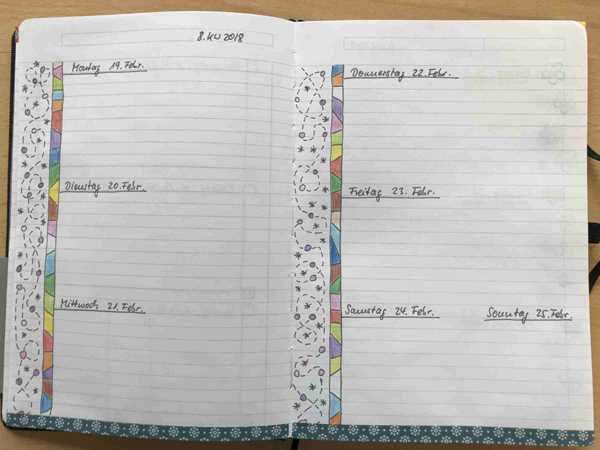 8. KW 2018
Montag 19. Febr.
Dienstag 20. Febr.
Mittwoch 21. Febr.
Donnerstag 22. Febr.
Freitag 23. Febr.
Samstag 24. Febr. Sonntag 25. Febr.